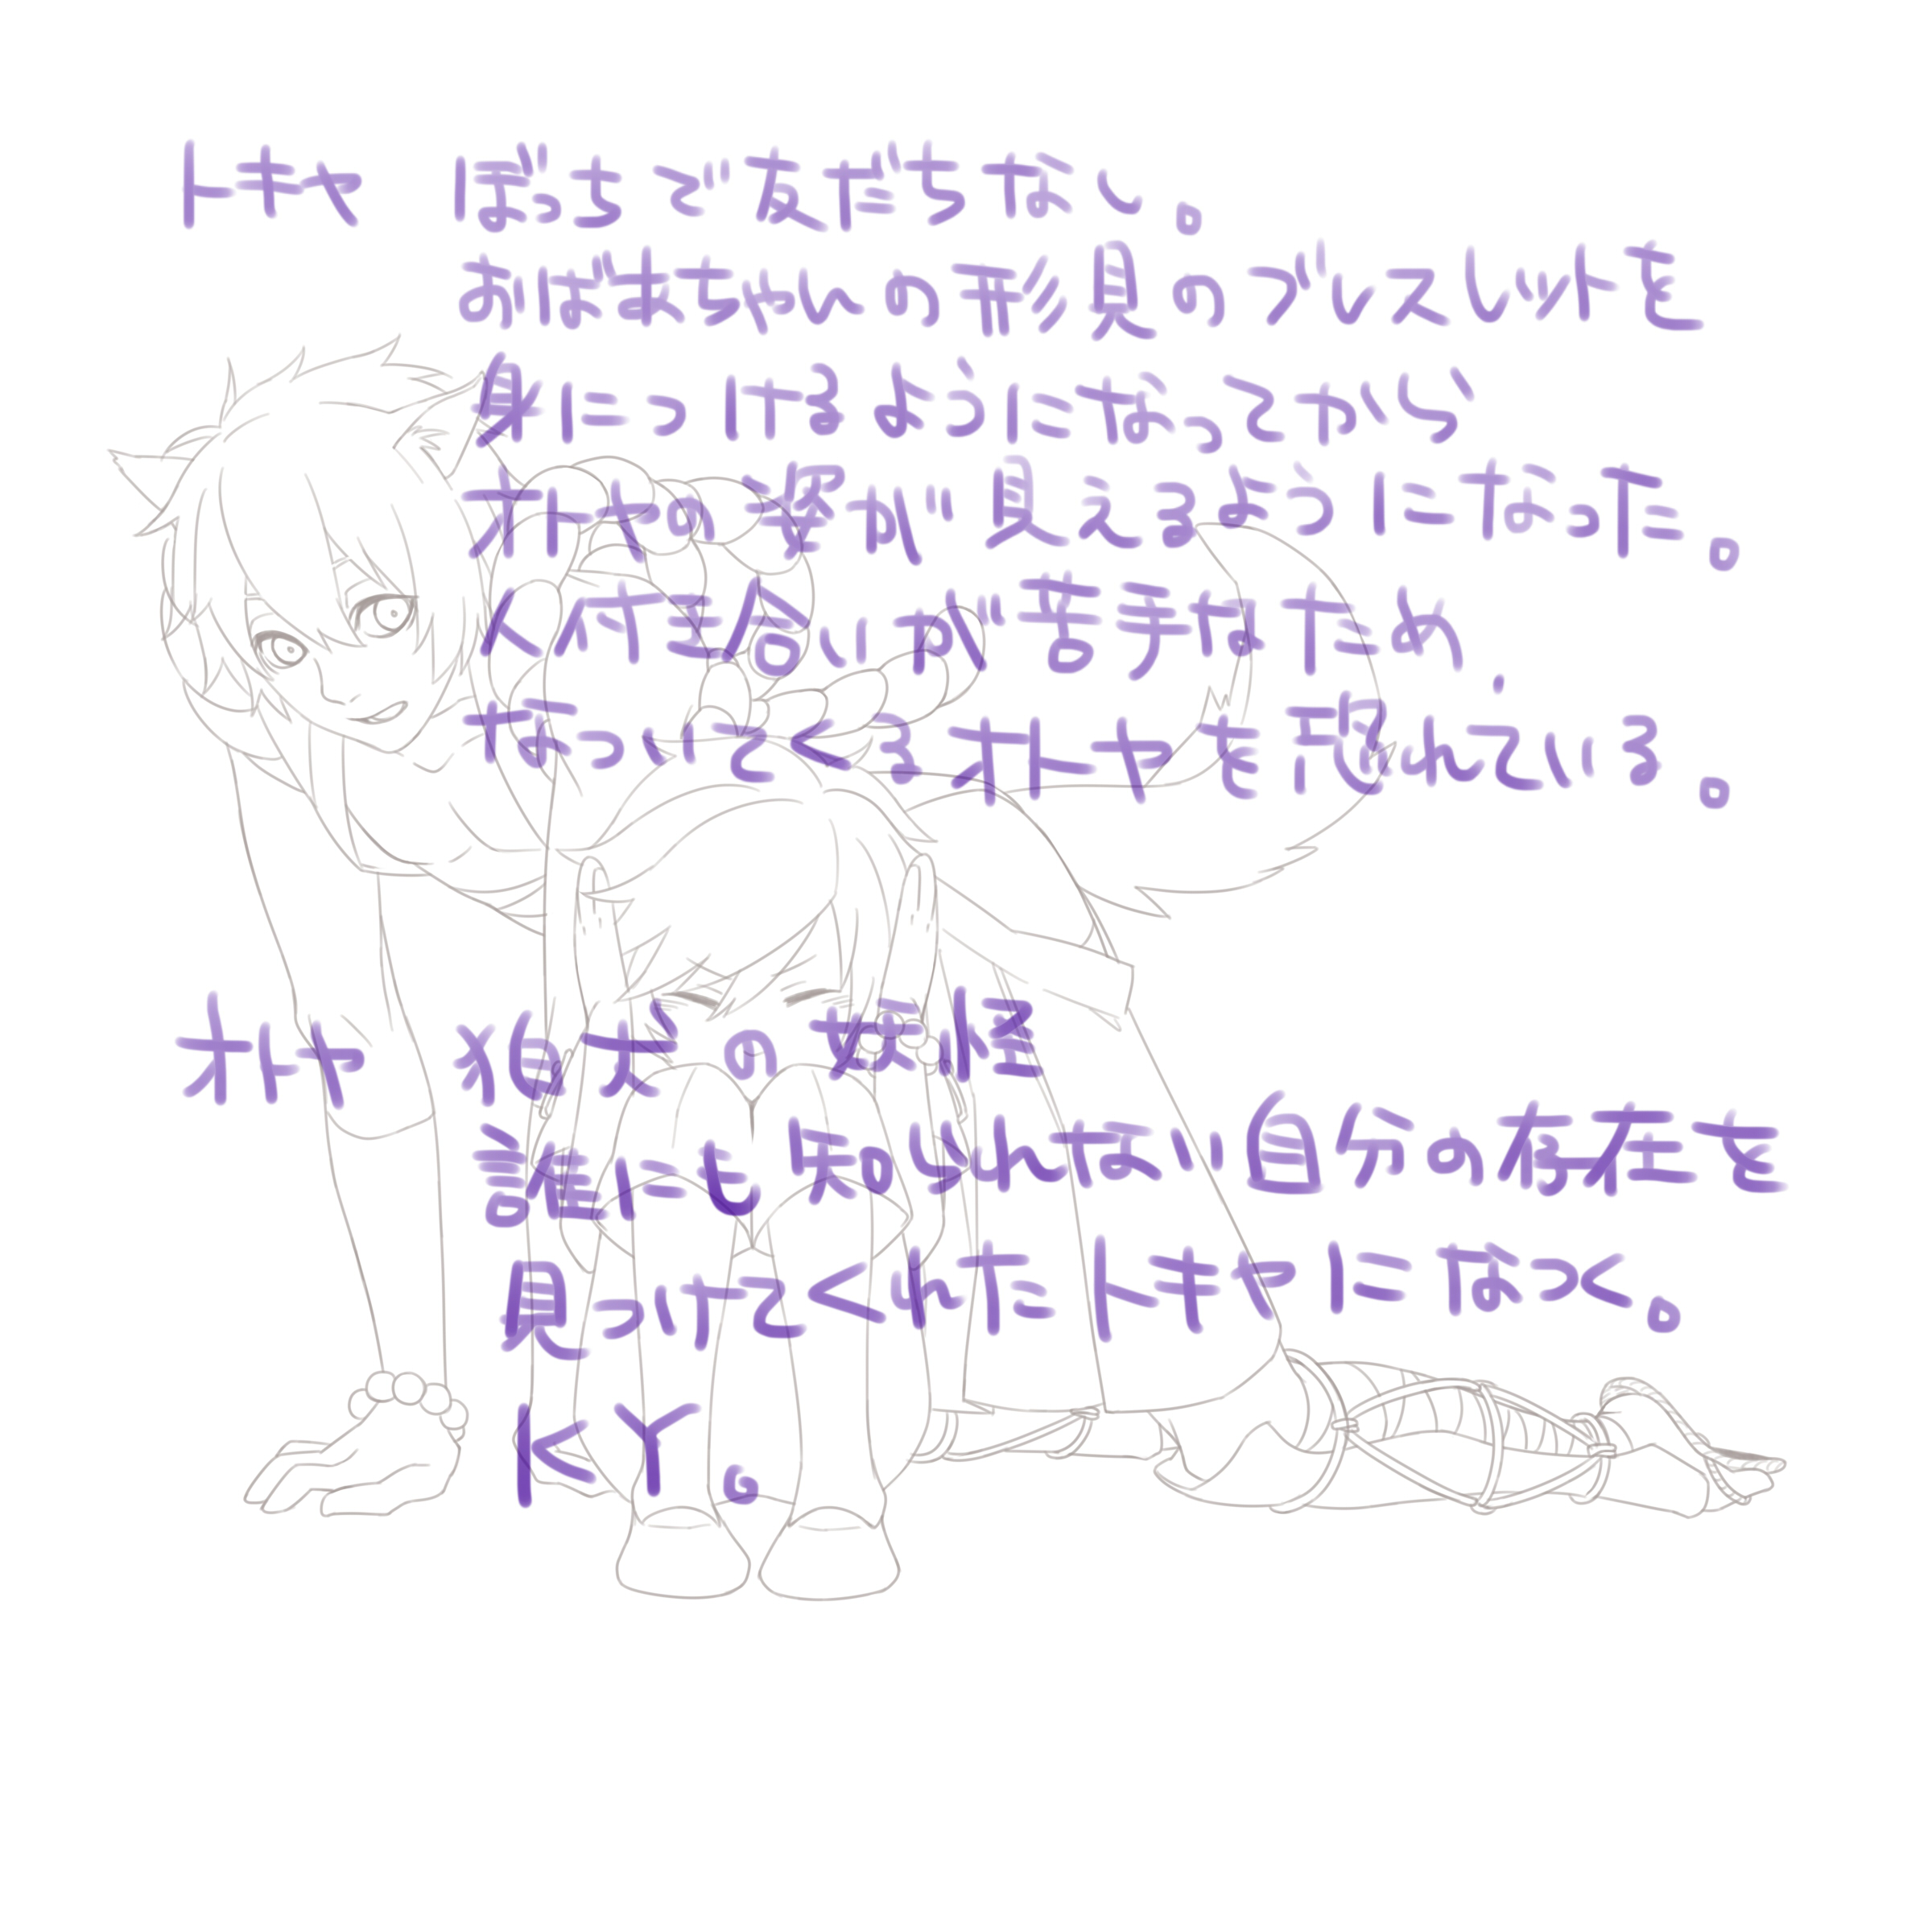 トキヤ ぼっちで友だちなし。
おばあちゃんの形見のブレスレットを
身につけるようになってから
オトヤの姿が見えるようになった。
人付き合いが苦手なため、
なついてくるオトヤを恐れている。
オトヤ 狛犬の妖怪
誰にも知られない自分の存在を
見つけてくれたトキヤになつく。
KY。